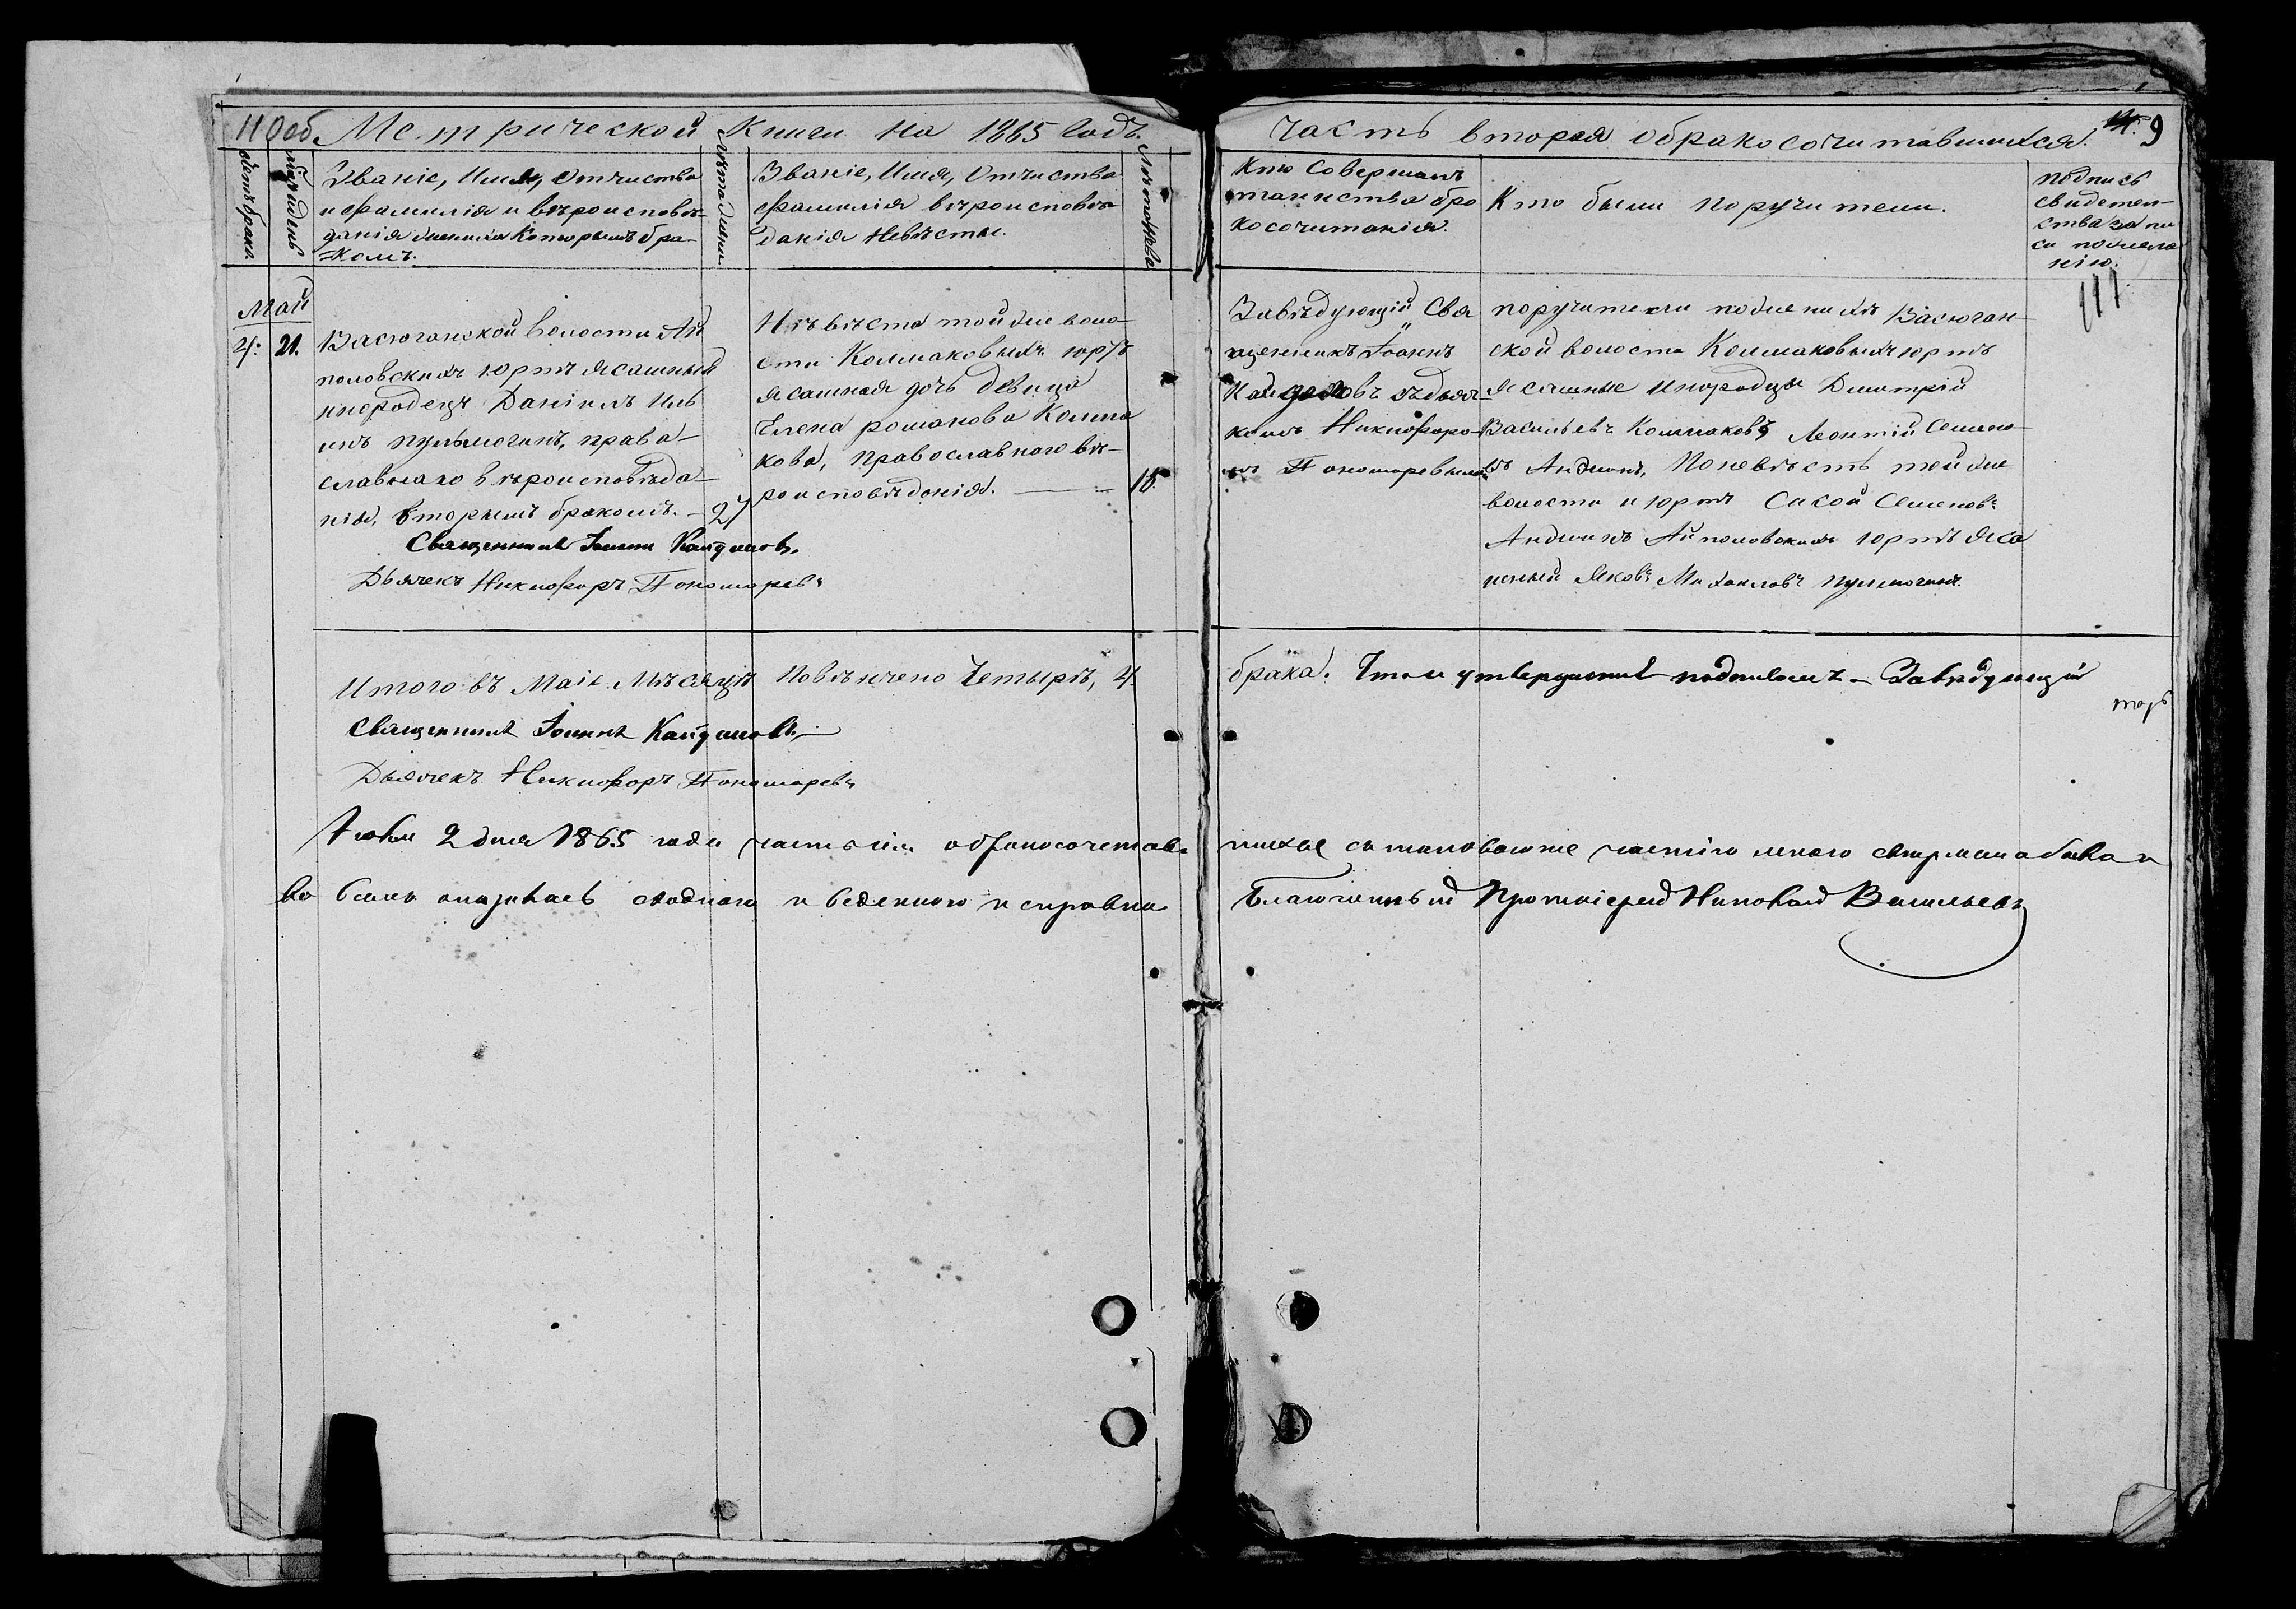 Метрической Книги на 1865 Годъ.
часть вторая обракосочитавшихся. 9
счетъ брака
мѣс. и день
Званіе, Имя, Отчиство
и Фамилія и вѣроисповѣ-
данія жениха Которымъ бра-
комъ.
лѣта жени
Званіе, Имя, Отчиство
Фамилія вѣроисповѣ-
данія Невѣсты.
лѣта невѣ
Кто Совершалъ
таинства бра
косочитанія
Кто были Поручители.
подпись
свидетел-
ства запи
си пожела
нію.
Май
4: 21.
Васюганской волости Ай
половскихъ юртъ ясашный
инородецъ Даніилъ Иль
инъ Пульмогинъ, права-
славнаго вѣроисповѣда-
нія, вторымъ бракомъ. — 27
Священникъ Іоаннъ Кайдаловъ.
Дьячекъ Никифоръ Пономаревъ
Невѣста той же воло-
сти Колмаковыхъ юртъ
ясашная дочь девица
Елена романова Колма
кова, православнаго вѣ-
роисповѣданія. — 18
Завѣдующій Свя
щенникъ Іоаннъ
Кайдаловъ съ дьяч-
комъ Никифоро-
мъ Пономаревымъ
поручители по женихѣ Васюган-
ской волости Колмаковыхъ юртъ
ясашные инородцы Димитрій
Васильевъ Колмаковъ, Леонтій Семено-
въ Ангинъ, По невѣстѣ той же
волости и юртъ Сисой Семеновъ
Ангинъ Айполовскихъ юртъ яса
шный Яковъ Михаиловъ Пульмогинъ
Итого въ Маіѣ Мѣсяцѣ Повѣнчено Четырѣ, 4.
брака. въ томъ утверждаемъ подписомъ — Завѣдующій
Священникъ Іоаннъ Кайдаловъ. —
Дьячекъ Никифоръ Пономаревъ
Іюня 2 дня 1865 года часть сія обракосочетав-
шихся съ таковою же частію мною свѣряема была и
во всемъ оказалась сходною и веденною исправно
Благочинный Протоіерей Николай Васильевъ